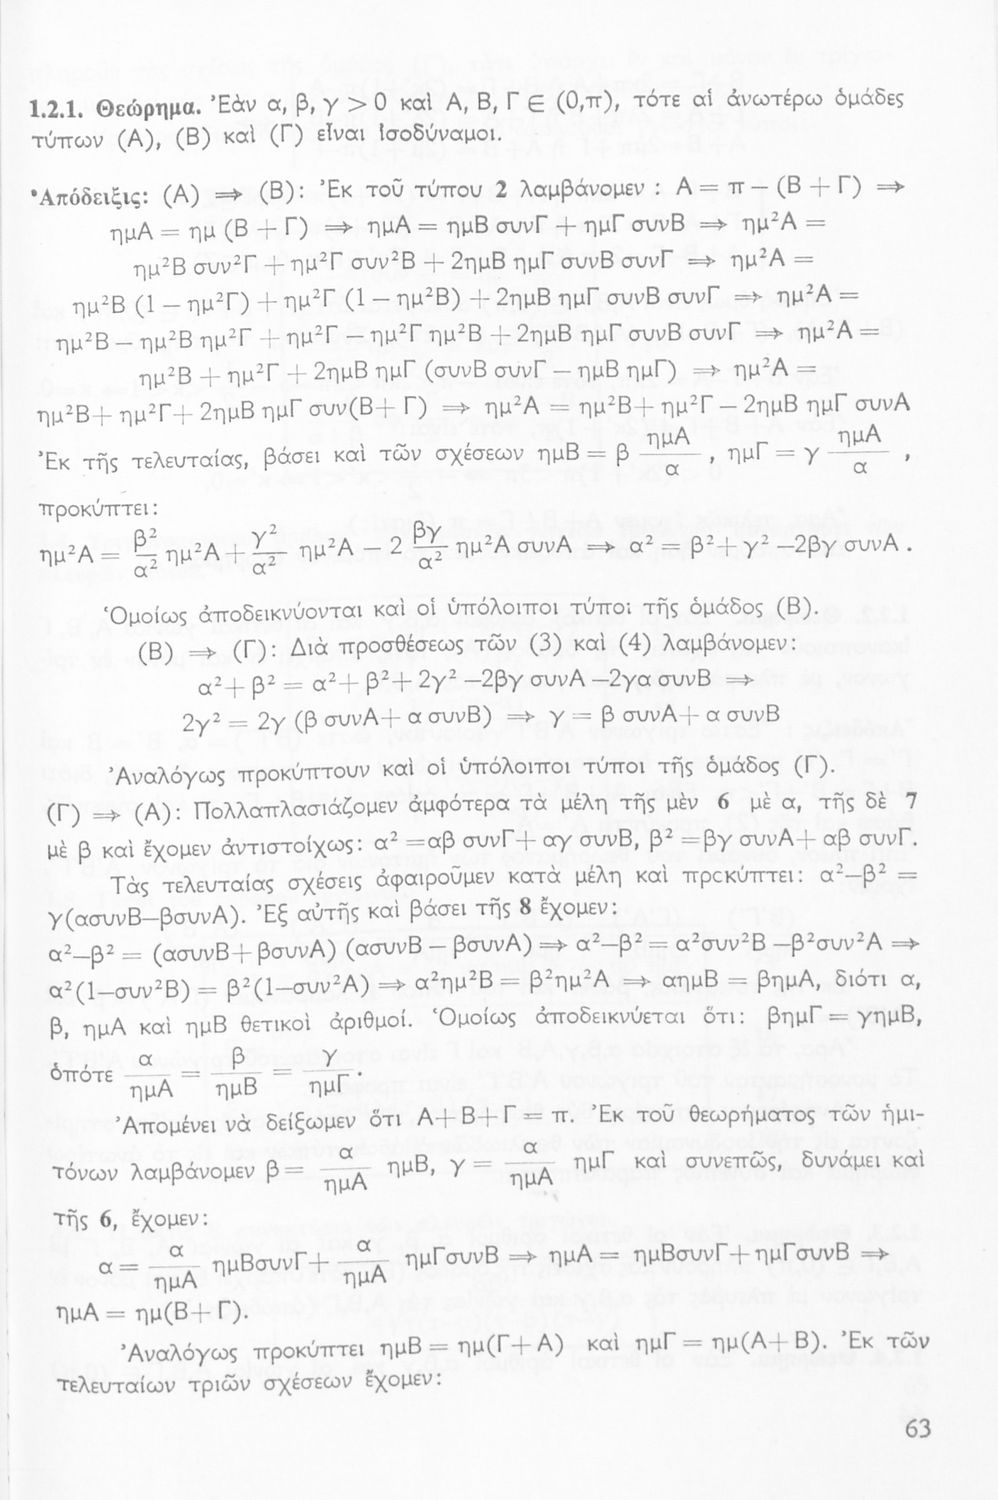 1.2.1. Θεώρημα. Ἐὰν α, β, γ > 0 καὶ Α, Β, Γ ∈ (0,π), τότε αἱ ἀνωτέρω ὁμάδες
τύπων (Α), (Β) καὶ (Γ) εἶναι ἰσοδύναμοι.
Ἀπόδειξις: (Α) ⇒ (Β): Ἐκ τοῦ τύπου 2 λαμβάνομεν : Α = π — (Β + Γ) ⇒
ημΑ = ημ (Β + Γ) ⇒ ημΑ = ημΒ συνΓ + ημΓ συνΒ ⇒ ημ²Α =
ημ²Β συν²Γ + ημ²Γ συν²Β + 2ημΒ ημΓ συνΒ συνΓ ⇒ ημ²Α =
ημ²Β (1 — ημ²Γ) + ημ²Γ (1 — ημ²Β) + 2ημΒ ημΓ συνΒ συνΓ ⇒ ημ²Α =
ημ²Β — ημ²Β ημ²Γ + ημ²Γ — ημ²Γ ημ²Β + 2ημΒ ημΓ συνΒ συνΓ ⇒ ημ²Α =
ημ²Β + ημ²Γ + 2ημΒ ημΓ (συνΒ συνΓ — ημΒ ημΓ) ⇒ ημ²Α =
ημ²Β+ ημ²Γ+ 2ημΒ ημΓ συν(Β+ Γ) ⇒ ημ²Α = ημ²Β+ ημ²Γ — 2ημΒ ημΓ συνΑ
Ἐκ τῆς τελευταίας, βάσει καὶ τῶν σχέσεων ημΒ = β ημΑ/α , ημΓ = γ ημΑ/α ,
προκύπτει:
ημ²Α = β²/α² ημ²Α + γ²/α² ημ²Α — 2 βγ/α² ημ²Α συνΑ ⇒ α² = β²+ γ² —2βγ συνΑ .
Ὁμοίως ἀποδεικνύονται καὶ οἱ ὑπόλοιποι τύποι τῆς ὁμάδος (Β).
(Β) ⇒ (Γ): Διὰ προσθέσεως τῶν (3) καὶ (4) λαμβάνομεν:
α²+ β² = α²+ β²+ 2γ² —2βγ συνΑ —2γα συνΒ ⇒
2γ² = 2γ (β συνΑ+ α συνΒ) ⇒ γ = β συνΑ+ α συνΒ
Ἀναλόγως προκύπτουν καὶ οἱ ὑπόλοιποι τύποι τῆς ὁμάδος (Γ).
(Γ) ⇒ (Α): Πολλαπλασιάζομεν ἀμφότερα τὰ μέλη τῆς μὲν 6 μὲ α, τῆς δὲ 7
μὲ β καὶ ἔχομεν ἀντιστοίχως: α² =αβ συνΓ+ αγ συνΒ, β² =βγ συνΑ+ αβ συνΓ.
Τὰς τελευταίας σχέσεις ἀφαιροῦμεν κατὰ μέλη καὶ προκύπτει: α²—β² =
γ(ασυνΒ—βσυνΑ). Ἐξ αὐτῆς καὶ βάσει τῆς 8 ἔχομεν:
α²—β² = (ασυνΒ+ βσυνΑ) (ασυνΒ — βσυνΑ) ⇒ α²—β² = α²συν²Β —β²συν²Α ⇒
α²(1—συν²Β) = β²(1—συν²Α) ⇒ α²ημ²Β = β²ημ²Α ⇒ αημΒ = βημΑ, διότι α,
β, ημΑ καὶ ημΒ θετικοὶ ἀριθμοί. Ὁμοίως ἀποδεικνύεται ὅτι: βημΓ = γημΒ,
ὁπότε α/ημΑ = β/ημΒ = γ/ημΓ.
Ἀπομένει νὰ δείξωμεν ὅτι Α+ Β+ Γ = π. Ἐκ τοῦ θεωρήματος τῶν ἡμι-
τόνων λαμβάνομεν β = α/ημΑ ημΒ, γ = α/ημΑ ημΓ καὶ συνεπῶς, δυνάμει καὶ
τῆς 6, ἔχομεν:
α = α/ημΑ ημΒσυνΓ+ α/ημΑ ημΓσυνΒ ⇒ ημΑ = ημΒσυνΓ+ ημΓσυνΒ ⇒
ημΑ = ημ(Β+ Γ).
Ἀναλόγως προκύπτει ημΒ = ημ(Γ+ Α) καὶ ημΓ = ημ(Α+ Β). Ἐκ τῶν
τελευταίων τριῶν σχέσεων ἔχομεν:
63